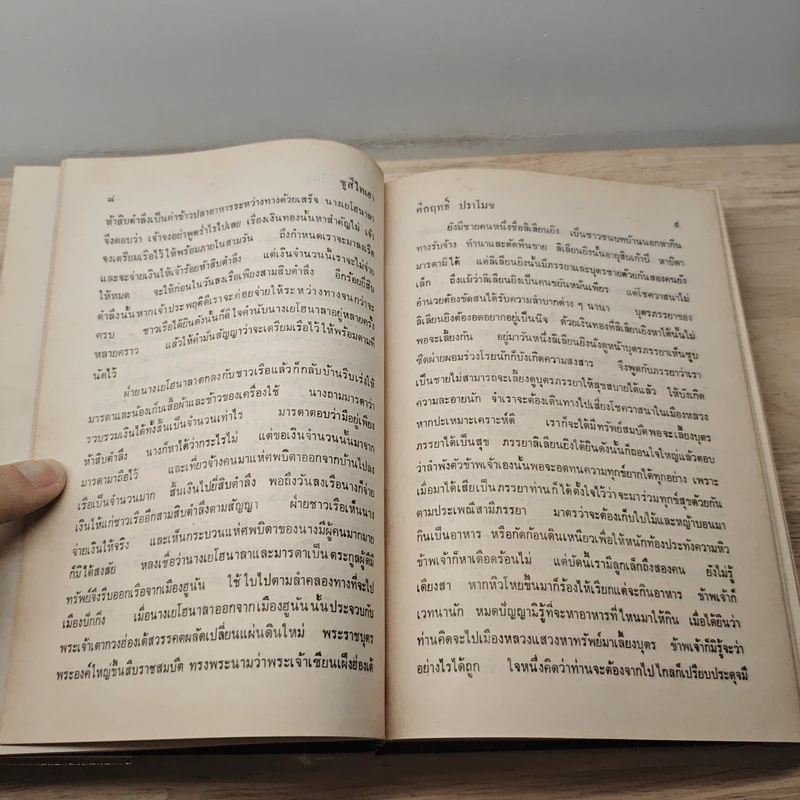 ๘
ซูสีไทเฮา
ห้าสิบตำลึงเป็นค่าข้าวปลาอาหารระหว่างทางด้วยเสร็จ นางเยโฮนาลา
จึงตอบว่า เจ้าจงอย่าพูดร่ำไรไปเลย เรื่องเงินทองนั้นหาสำคัญไม่ เจ้า
จงเตรียมเรือไว้ให้พร้อมภายในสามวัน ถึงกำหนดเราจะมาลงเรือ
และจะจ่ายเงินให้เจ้าร้อยห้าสิบตำลึง แต่เงินจำนวนนี้เราจะไม่จ่าย
ให้หมด จะให้ก่อนในวันลงเรือเพียงสามสิบตำลึง อีกร้อยยี่สิบ
ตำลึงนั้นหากเจ้าประพฤติดีเราจะค่อยจ่ายให้ระหว่างทางจนกว่าจะ
ครบ ชาวเรือได้ยินดังนั้นก็ดีใจคำนับนางเยโฮนาลาอยู่หลายครั้ง
หลายคราว แล้วให้คำมั่นสัญญาว่าจะเตรียมเรือไว้ให้พร้อมตามที่
นัดไว้
ฝ่ายนางเยโฮนาลาตกลงกับชาวเรือแล้วก็กลับบ้านรีบเร่งให้
มารดาและน้องเก็บเสื้อผ้าและข้าวของเครื่องใช้ นางถามมารดาว่า
รวบรวมเงินได้ทั้งสิ้นเป็นจำนวนเท่าไร มารดาตอบว่ามีอยู่เพียง
ห้าสิบตำลึง นางก็หาได้ว่ากระไรไม่ แต่ขอเงินจำนวนนั้นมาจาก
มารดามาถือไว้ และเที่ยวจ้างคนมาแห่ศพบิดาออกจากบ้านไปลง
เรือเป็นจำนวนมาก สิ้นเงินไปยี่สิบตำลึง พอถึงวันลงเรือนางก็จ่าย
เงินให้แก่ชาวเรืออีกสามสิบตำลึงตามสัญญา ฝ่ายชาวเรือเห็นนาง
จ่ายเงินให้จริง และเห็นกระบวนแห่ศพบิดาของนางมีผู้คนมากมาย
ก็มิได้สงสัย หลงเชื่อว่านางเยโฮนาลาและมารดาเป็นตระกูลผู้ดีมี
ทรัพย์จึงรีบออกเรือจากเมืองฮูนัน ใช้ใบไปตามลำคลองทางที่จะไป
เมืองปักกิ่ง เมื่อนางเยโฮนาลาออกจากเมืองฮูนันนั้นประจวบกับ
พระเจ้าเตากวงฮ่องเต้สวรรคตผลัดเปลี่ยนแผ่นดินใหม่ พระราชบุตร
พระองค์ใหญ่ขึ้นสืบราชสมบัติ ทรงพระนามว่าพระเจ้าเซียนเฝิงฮ่องเต้
คึกฤทธิ์ ปราโมช
๙
ยังมีชายคนหนึ่งชื่อลิเลียนยิง เป็นชาวชนบทบ้านนอกหากิน
ทางรับจ้าง ทำนาและตัดฟืนขาย ลิเลียนยิงนั้นอายุสิบเก้าปี หาบิดา
มารดามิได้ แต่ลิเลียนยิงนั้นมีภรรยาและบุตรชายด้วยกันสองคนยัง
เล็ก ถึงแม้ว่าลิเลียนยิงเป็นคนขยันหมั่นเพียร แต่โชควาสนาไม่
อำนวยต้องขัดสนได้รับความลำบากต่าง ๆ นานา บุตรภรรยาของ
ลิเลียนยิงต้องอดอยากอยู่เป็นนิจ ด้วยเงินทองที่ลิเลียนยิงหาได้นั้นไม่
พอจะเลี้ยงกัน อยู่มาวันหนึ่งลิเลียนยิงนั่งดูหน้าบุตรภรรยาเห็นซูบ
ซีดผ่ายผอมร่วงโรยนักก็บังเกิดความสงสาร จึงพูดกับภรรยาว่าเรา
เป็นชายไม่สามารถจะเลี้ยงดูบุตรภรรยาให้สุขสบายได้แล้ว ให้บังเกิด
ความละอายนัก จำเราจะต้องเดินทางไปเสี่ยงโชควาสนาในเมืองหลวง
หากปะเหมาะเคราะห์ดี เราก็จะได้มีทรัพย์สมบัติพอจะเลี้ยงบุตร
ภรรยาได้เป็นสุข ภรรยาลิเลียนยิงได้ยินดังนั้นก็ถอนใจใหญ่แล้วตอบ
ว่าลำพังตัวข้าพเจ้าเองนั้นพอจะอดทนความทุกข์ยากได้ทุกอย่าง เพราะ
เมื่อมาได้เสียเป็นภรรยาท่านก็ได้ตั้งใจไว้ว่าจะมาร่วมทุกข์สุขด้วยกัน
ตามประเพณีสามีภรรยา มาตรว่าจะต้องเก็บใบไม้และหญ้าบอนมา
กินเป็นอาหาร หรือกัดก้อนดินเหนียวเพื่อให้หนักท้องประทังความหิว
ข้าพเจ้าก็หาเดือดร้อนไม่ แต่บัดนี้เรามีลูกเล็กถึงสองคน ยังไม่รู้
เดียงสา หากหิวโหยขึ้นมาก็ร้องให้เรียกแต่จะกินอาหาร ข้าพเจ้าก็
เวทนานัก หมดปัญญามิรู้ที่จะหาอาหารที่ไหนมาให้กิน เมื่อได้ยินว่า
ท่านคิดจะไปเมืองหลวงแสวงหาทรัพย์มาเลี้ยงบุตร ข้าพเจ้าก็มิรู้จะว่า
อย่างไรได้ถูก ใจหนึ่งคิดว่าท่านจะต้องจากไปไกลก็เปรียบประดุจมี